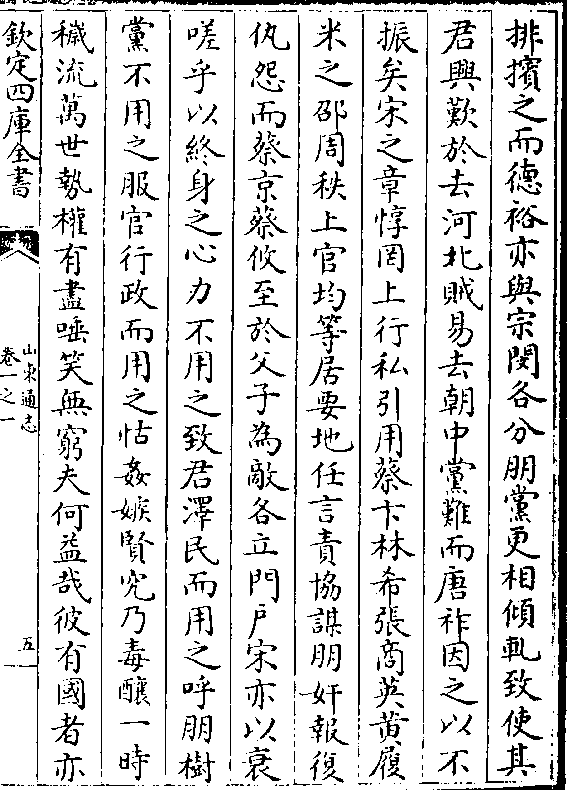 排擯之而德裕亦與宗閔各分朋黨更相傾軋致使其
君興歎於去河北賊易去朝中黨難而唐祚因之以不
振矣宋之章惇罔上行私引用蔡卞林希張商英黄履
米之邵周秩上官均等居要地任言責協謀朋奸報復
仇怨而蔡京蔡攸至於父子為敵各立門戶宋亦以衰
嗟乎以終身之心力不用之致君澤民而用之呼朋樹
黨不用之服官行政而用之怙姦嫉賢究乃毒釀一時
穢流萬世勢權有盡唾笑無窮夫何益哉彼有國者亦
欽定四庫全書
山東通志
卷一之一
五